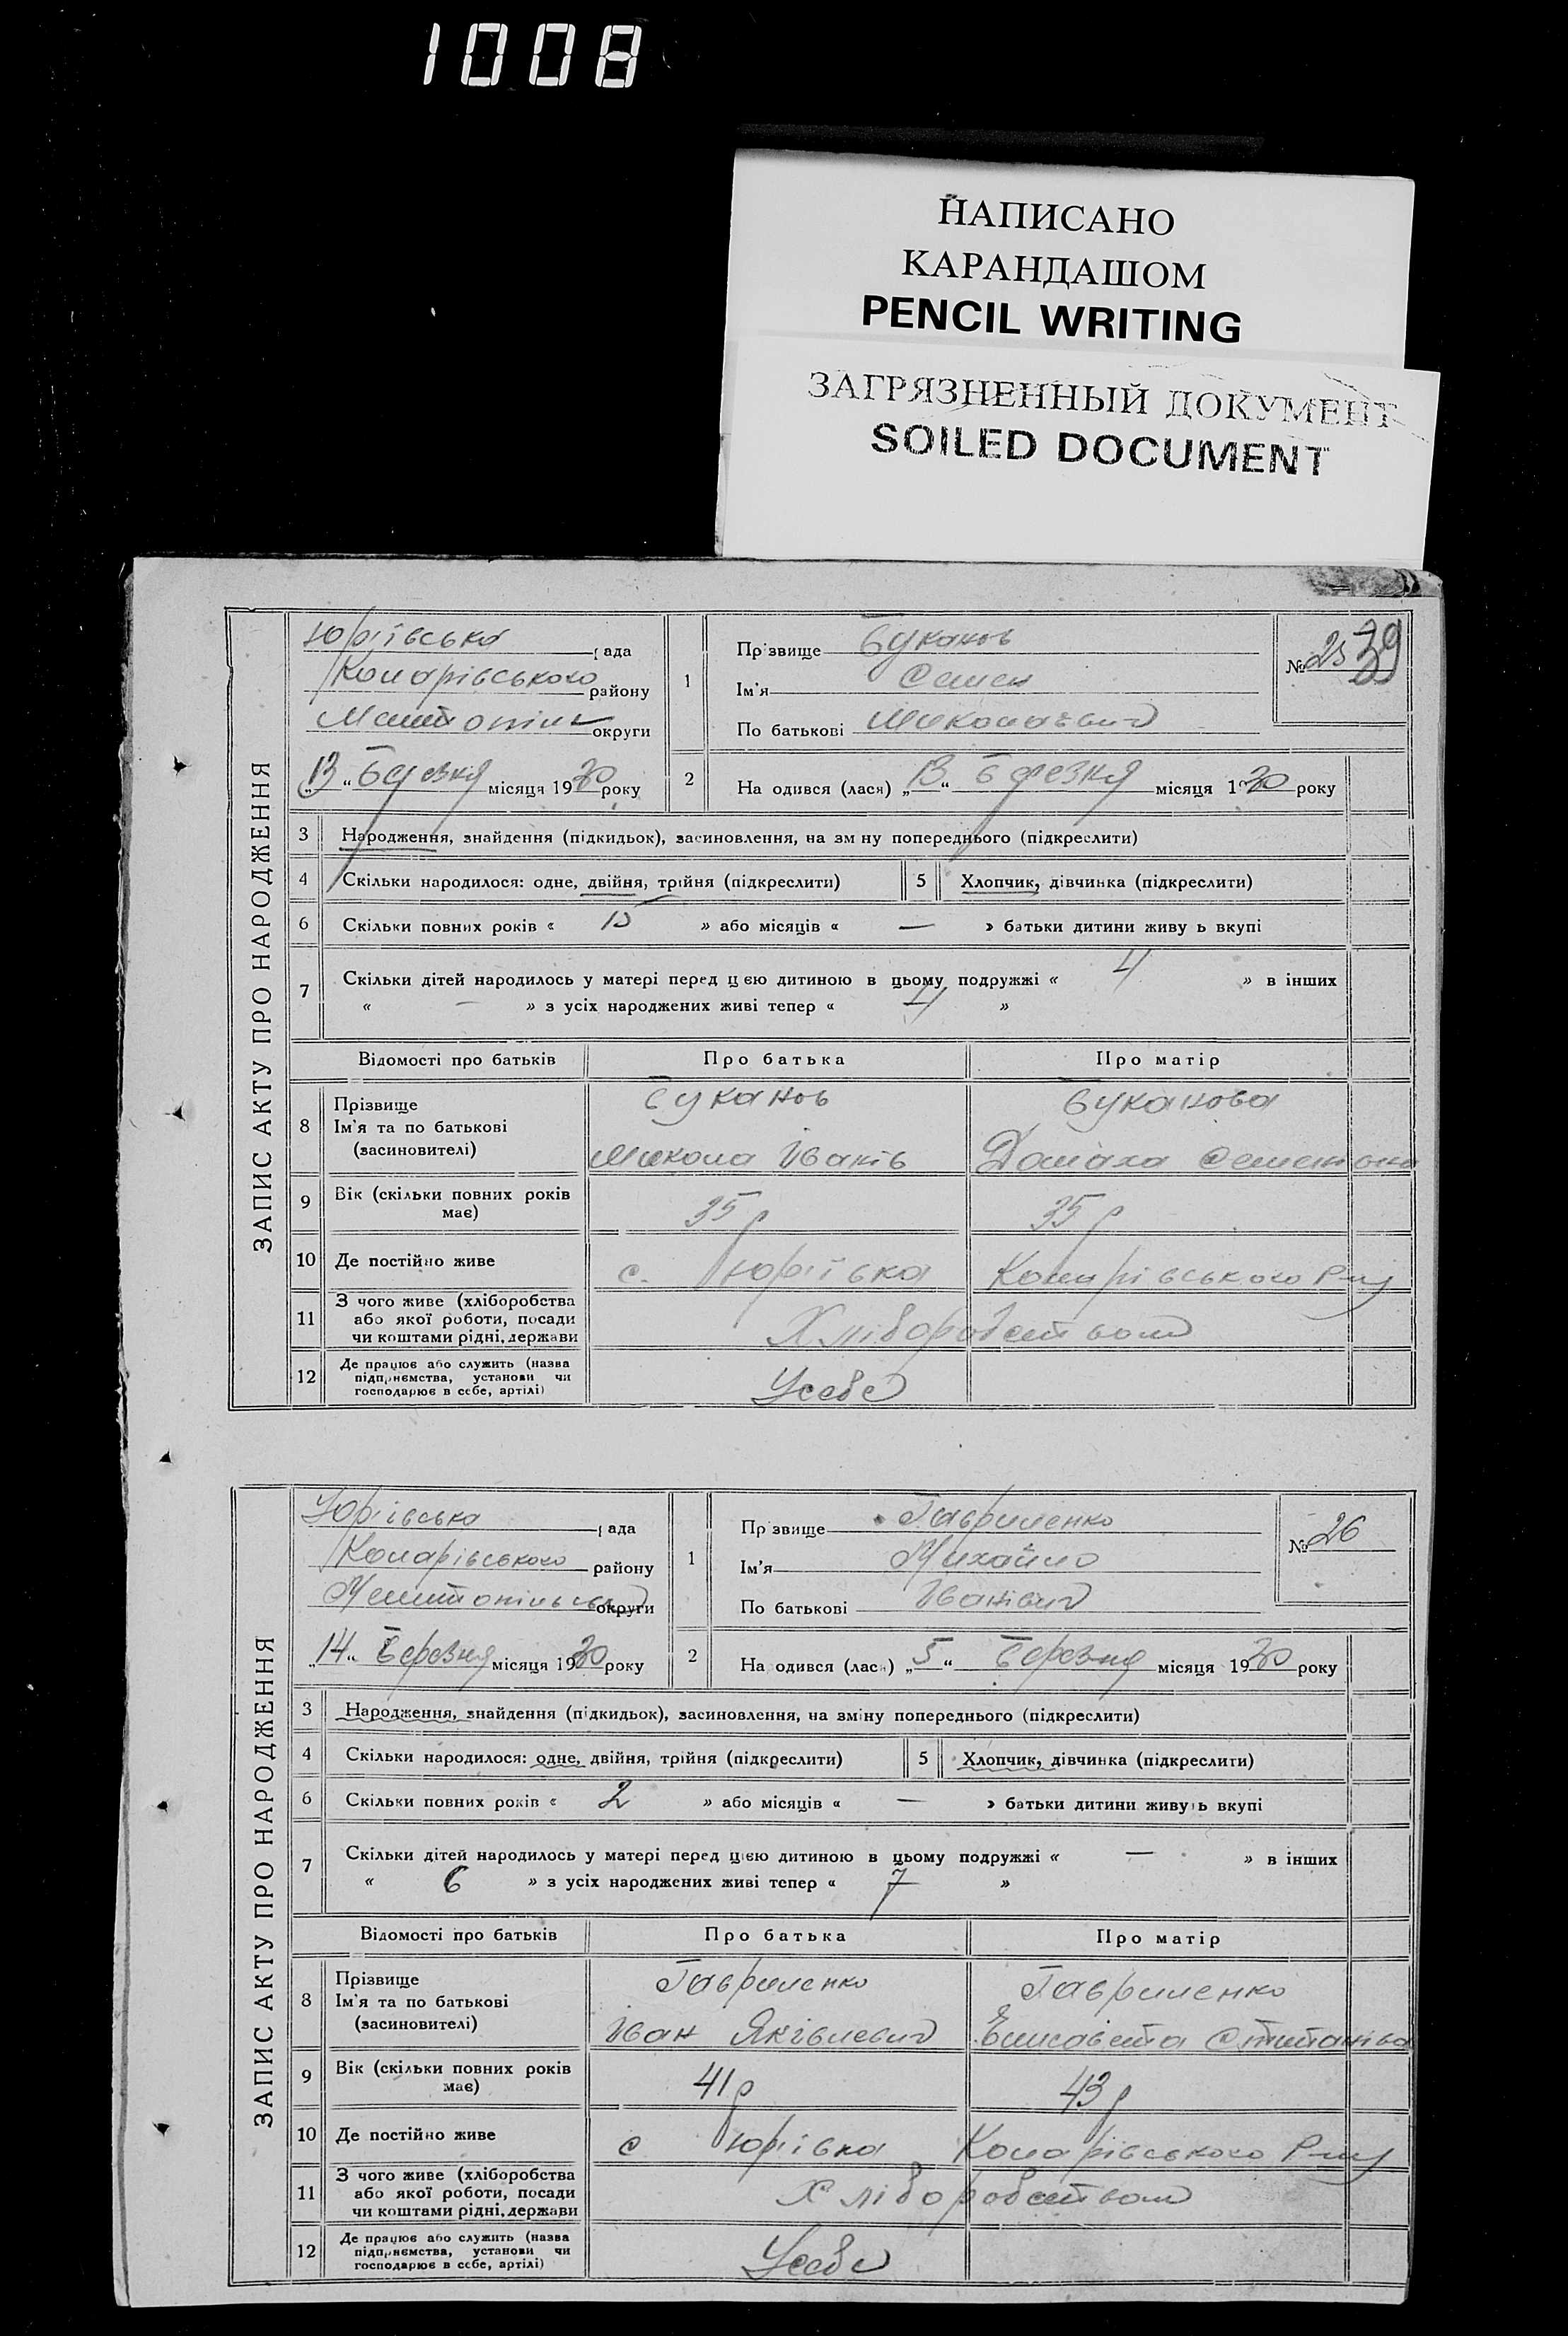 1008
НАПИСАНО
КАРАНДАШОМ
PENCIL WRITING
ЗАГРЯЗНЕННЫЙ ДОКУМЕНТ
SOILED DOCUMENT
ЗАПИС АКТУ ПРО НАРОДЖЕННЯ
Юріївська рада
району
округи
„13“ Березня місяця 1930 року
1
Прізвище Буканов
Ім'я Семен
По батькові Миколаевич
№ 25 39
2
На одився (лася) „13“ Березня місяця 1930 року
3 Народження, знайдення (підкидьок), засиновлення, на зм ну попереднього (підкреслити)
4 Скільки народилося: одне, двійня, трійня (підкреслити)
5 Хлопчик, дівчинка (підкреслити)
6 Скільки повних років « 15 » або місяців « — » батьки дитини живу ь вкупі
7 Скільки дітей народилось у матері перед цією дитиною в цьому подружжі « 4 » в інших
« — » з усіх народжених живі тепер « 4 »
Відомості про батьків Про батька Про матір
8 Прізвище
Ім'я та по батькові
(засиновителі)
Буканов
Микола Іванів
Буканова
9 Вік (скільки повних років
має)
35 р
35 р
10 Де постійно живе с. Юріївка Р-ну
11 З чого живе (хліборобства
або якої роботи, посади
чи коштами рідні, держави
Хліборобством
12 Де працює або служить (назва
підприємства, установи чи
господарює в себе, артілі)
Усебе
ЗАПИС АКТУ ПРО НАРОДЖЕННЯ
Юрівська рада
району
округи
„14“ Березня місяця 1930 року
1
Прізвище Гавриленко
Ім'я Михайло
По батькові Іванович
№ 26
2
На одився (лася) „5“ Березня місяця 1930 року
3 Народження, знайдення (підкидьок), засиновлення, на зміну попереднього (підкреслити)
4 Скільки народилося: одне, двійня, трійня (підкреслити)
5 Хлопчик, дівчинка (підкреслити)
6 Скільки повних років « 2 » або місяців « — » батьки дитини живуть вкупі
7 Скільки дітей народилось у матері перед цією дитиною в цьому подружжі « — » в інших
« 6 » з усіх народжених живі тепер « 7 »
Відомості про батьків Про батька Про матір
8 Прізвище
Ім'я та по батькові
(засиновителі)
Гавриленко
Іван Яківлевич
Гавриленко
9 Вік (скільки повних років
має)
41 р
43 р
10 Де постійно живе с Юрівка Р-ну
11 З чого живе (хліборобства
або якої роботи, посади
чи коштами рідні, держави
Хліборобством
12 Де працює або служить (назва
підприємства, установи чи
господарює в себе, артілі)
Усебе